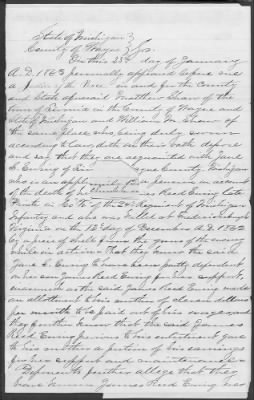 State of Michigan }
County of Wayne } ss.
On this 23d day of January
A.D. 1863 personally appeared before me
a Justice of the Peace in and for the County
and State aforesaid Matthew Shaw of the
town of in the County of Wayne and
State of Michigan and William M. Shaw of
the same place who being duly sworn
according to law doth on their oath depose
and say that they are acquainted with Jane
S. Ewing of Wayne County, Michigan
who is an applicant for a pension on account
of the death of Reed Ewing late
Private in Co "C" of the 24th Regiment of Michigan
Infantry and who was killed at Fredericksburgh
Virginia on the 12th day of December A.D. 1862
by a piece of shell from the guns of the enemy
while in action that they know the said
Jane S. Ewing to have been partly dependent
on her son James Reed Ewing for her support,
inasmuch as the said James Reed Ewing made
an allotment to his mother of eleven dollars
per month to be paid out of his wages and
they further know that the said James
Reed Ewing previous to his enlistment gave
to his mother a portion of his earnings
for her support and maintenance
Deponents further allege that they
have known James Reed Ewing